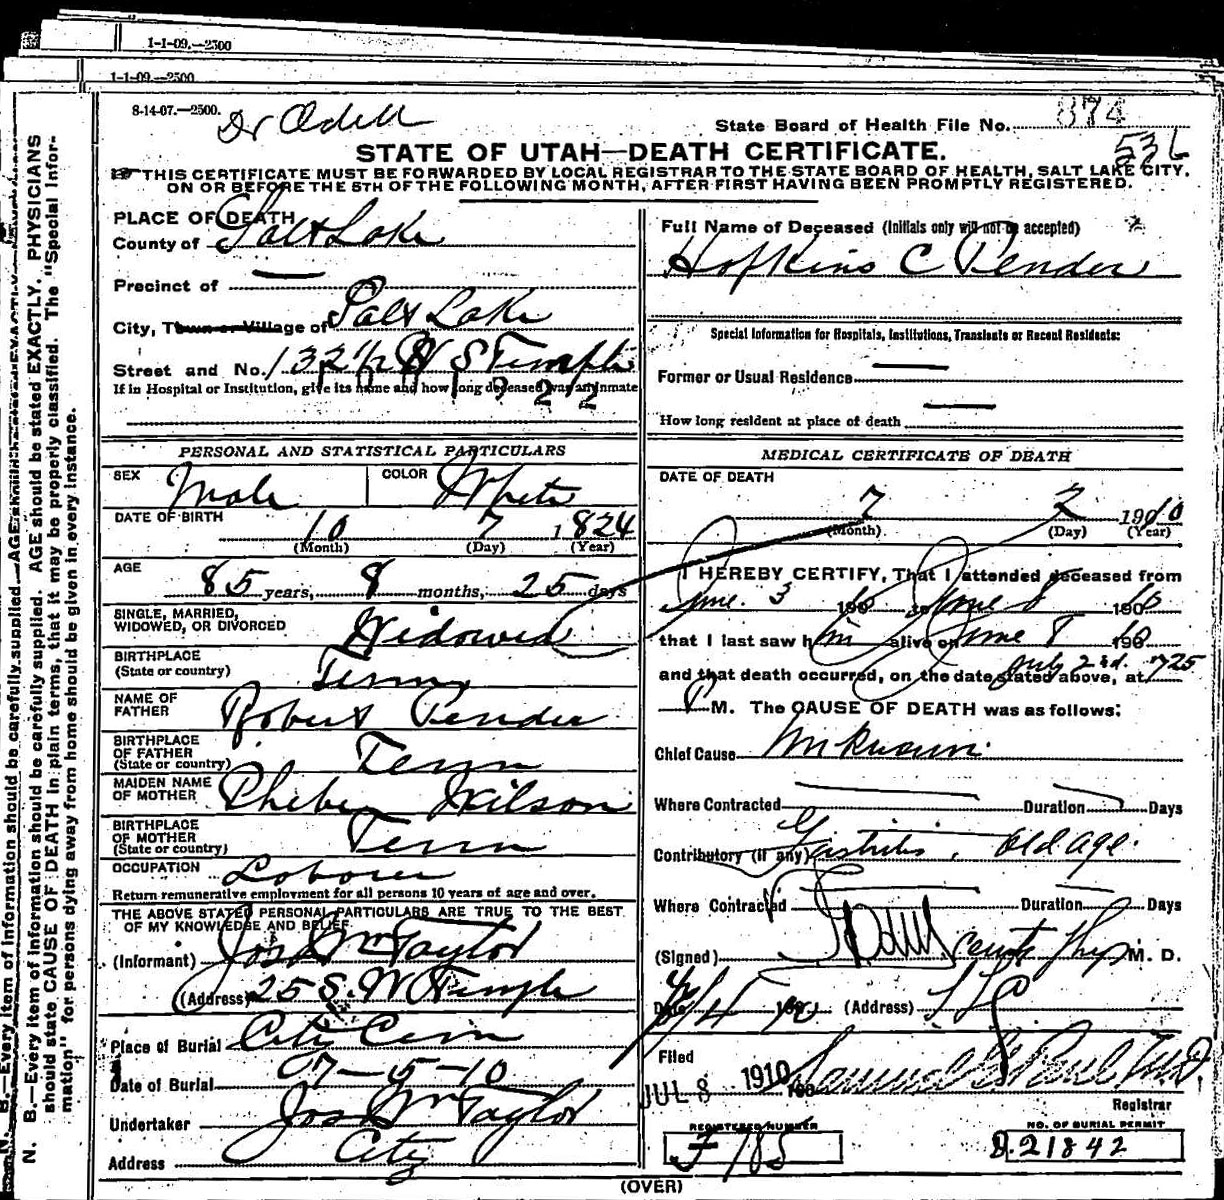 1-1-09.—2500
1-1-09.—2500
8-14-07.—2500.
Dr Odell
State Board of Health File No. 874
536
STATE OF UTAH—DEATH CERTIFICATE.
THIS CERTIFICATE MUST BE FORWARDED BY LOCAL REGISTRAR TO THE STATE BOARD OF HEALTH, SALT LAKE CITY.
ON OR BEFORE THE 5TH OF THE FOLLOWING MONTH, AFTER FIRST HAVING BEEN PROMPTLY REGISTERED.
PLACE OF DEATH
County of Salt Lake
Precinct of —
City, Town or Village of Salt Lake
Street and No. 132 1/2 W S Temple
If in Hospital or Institution, give its name and how long deceased was an inmate
PERSONAL AND STATISTICAL PARTICULARS
SEX Male COLOR White
DATE OF BIRTH 10 7 1824
(Month) (Day) (Year)
AGE 85 years, 8 months, 25 days
SINGLE, MARRIED,
WIDOWED, OR DIVORCED Widowed
BIRTHPLACE
(State or country) Tenn
NAME OF
FATHER Robert Pender
BIRTHPLACE
OF FATHER
(State or country) Tenn
MAIDEN NAME
OF MOTHER Pheby Wilson
BIRTHPLACE
OF MOTHER
(State or country) Tenn
OCCUPATION Laborer
Return remunerative employment for all persons 10 years of age and over.
THE ABOVE STATED PERSONAL PARTICULARS ARE TRUE TO THE BEST
OF MY KNOWLEDGE AND BELIEF
(Informant) Jos Wm Taylor
(Address) 25 S. W Temple
Place of Burial City Cem
Date of Burial 07-5-10
Undertaker Jos Wm Taylor
Address City
Full Name of Deceased (Initials only will not be accepted)
Hopkins C Pender
Special Information for Hospitals, Institutions, Transients or Recent Residents:
Former or Usual Residence —
How long resident at place of death —
MEDICAL CERTIFICATE OF DEATH
DATE OF DEATH
7 2 1910
(Month) (Day) (Year)
I HEREBY CERTIFY, That I attended deceased from
June 3 1910 to June 8 1910
that I last saw him alive on June 8 1910
July 2nd.
and that death occurred, on the date stated above, at 725
P M. The CAUSE OF DEATH was as follows:
Chief Cause Unknown.
Where Contracted — Duration — Days
Contributory (if any) Gastritis, Old age.
Where Contracted — Duration — Days
(Signed) County Phys M. D.
Date 7/4 1910 (Address) S L C
Filed
JUL 8 1910 Samuel G Paul M.D.
Registrar
REGISTERED NUMBER
F 785
NO. OF BURIAL PERMIT
B.21842
(OVER)
N. B.—Every item of information should be carefully supplied. AGE should be stated EXACTLY. PHYSICIANS
should state CAUSE OF DEATH in plain terms, that it may be properly classified. The "Special Infor-
mation" for persons dying away from home should be given in every instance.